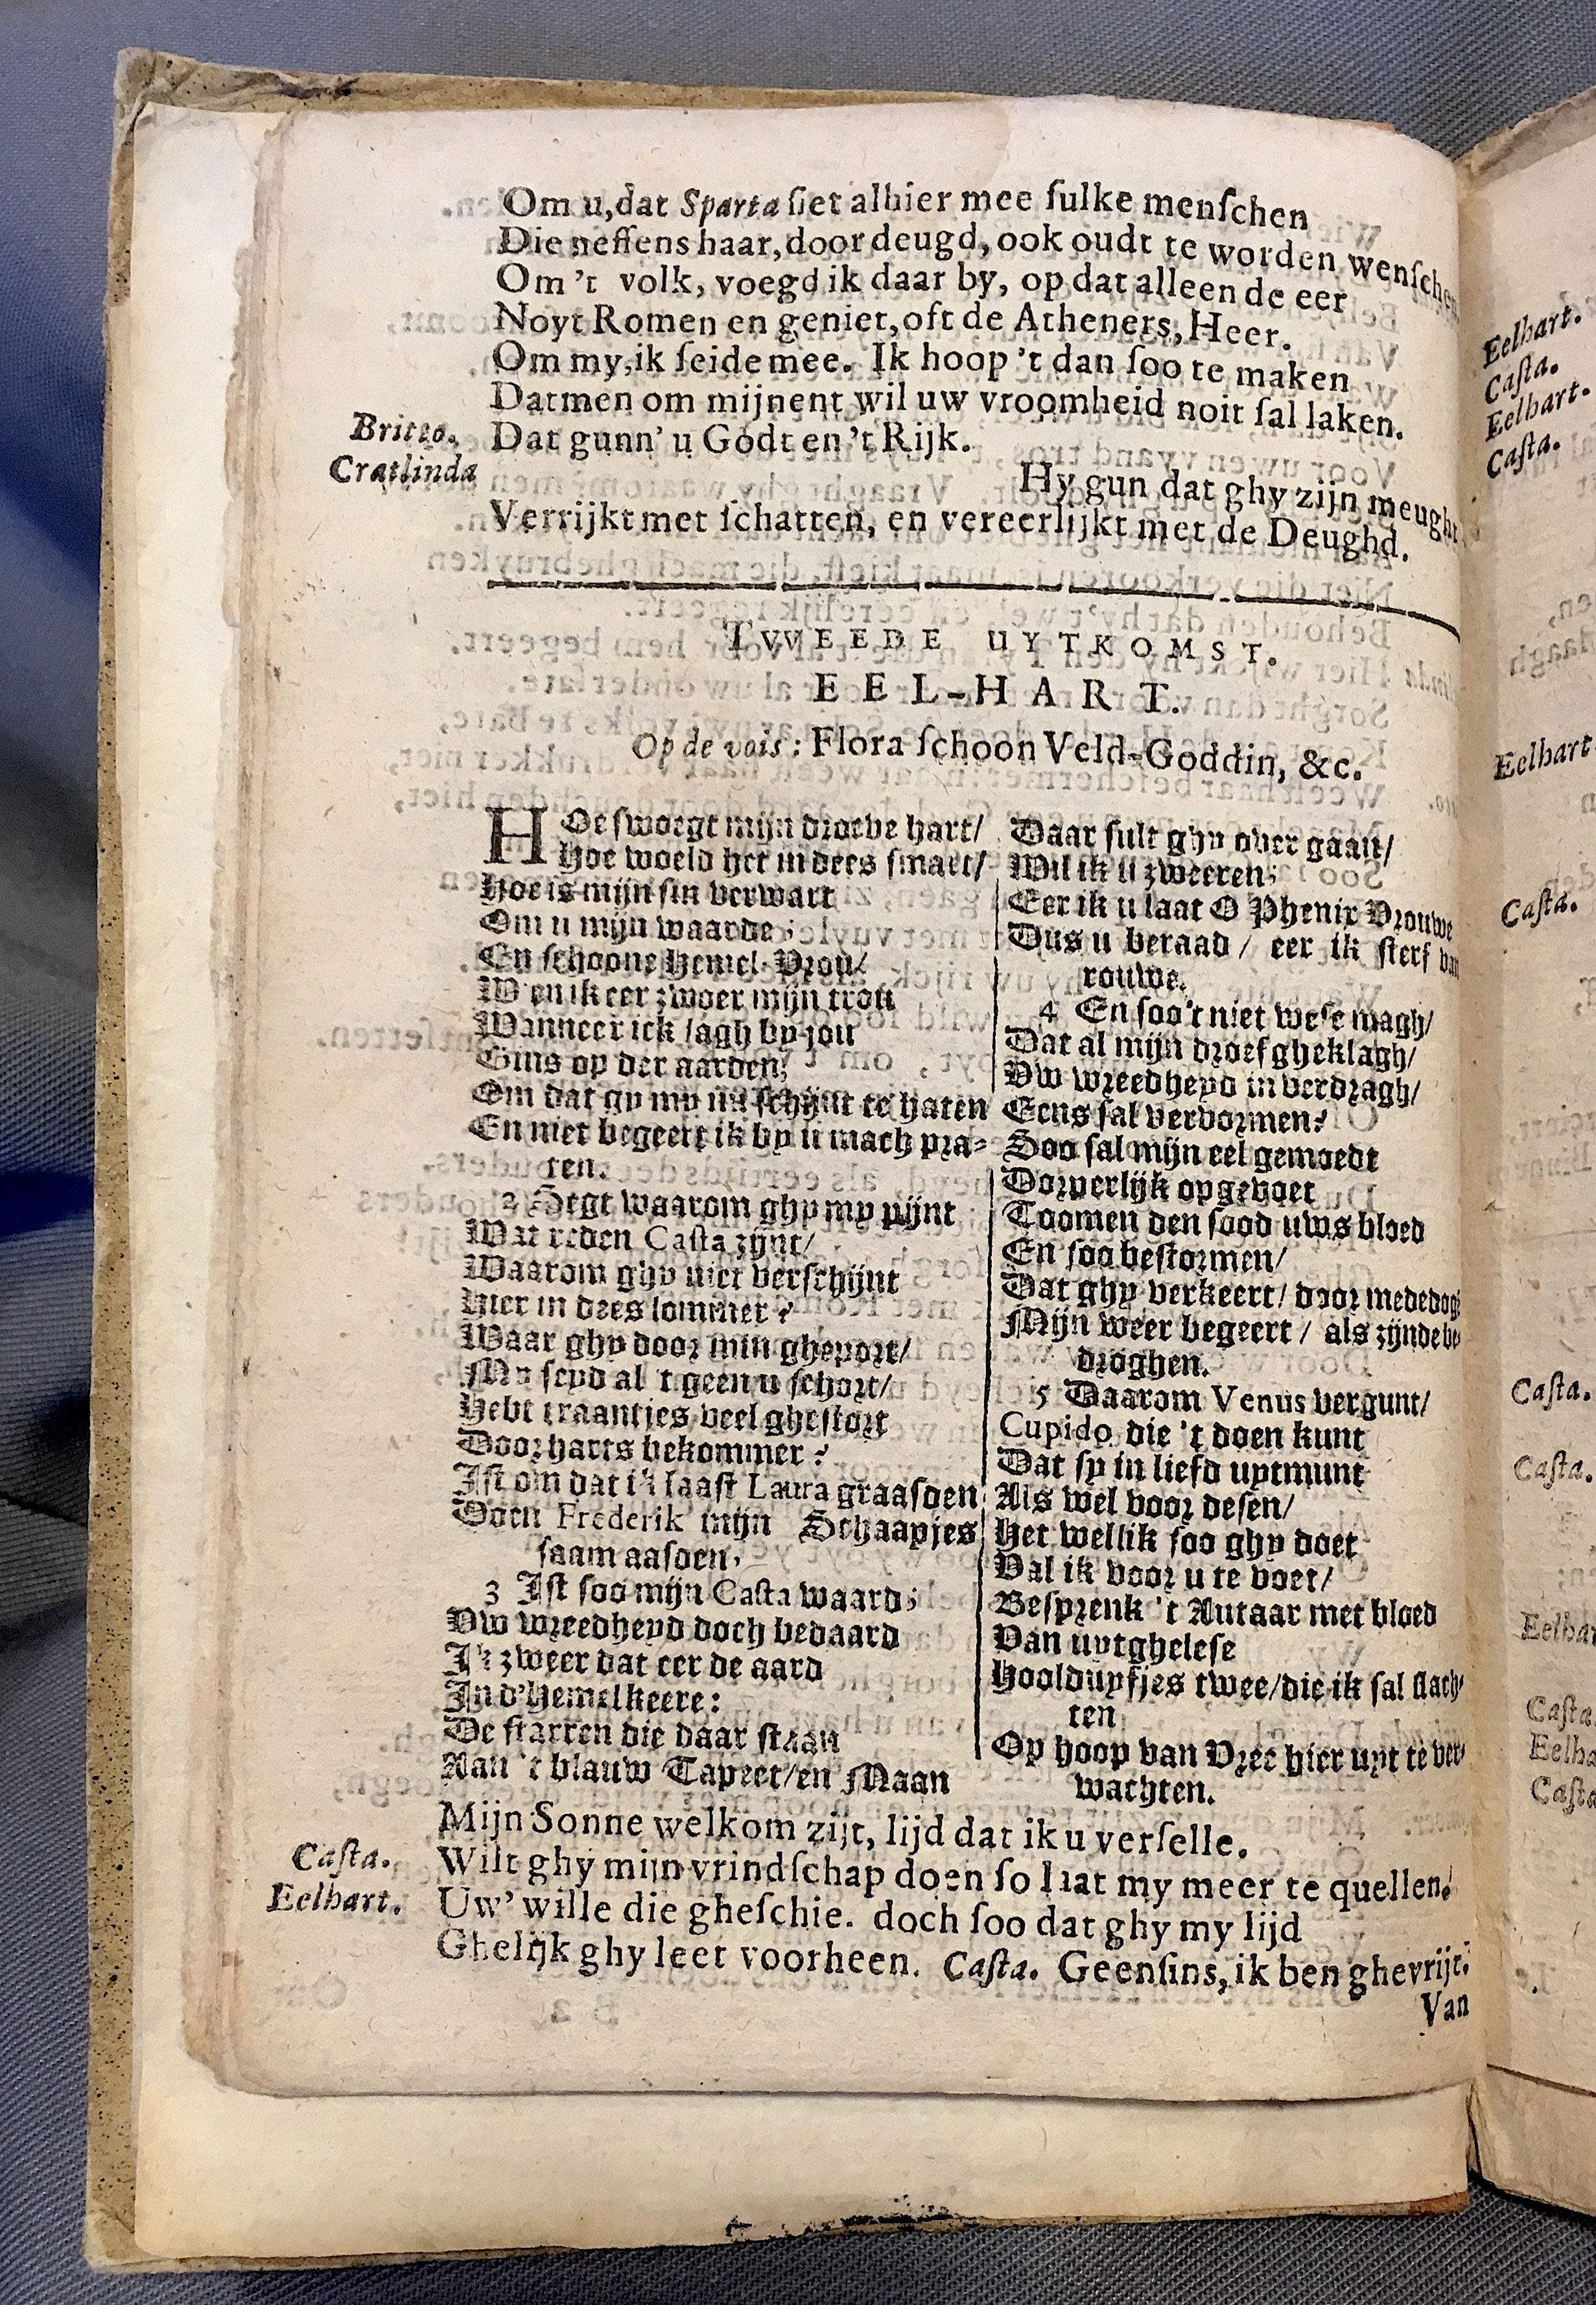 Om u, dat Sparta siet alhier mee sulke menschen
Die neffens haar, door deugd, ook oudt te worden wenschen
Om 't volk, voegd ik daar by, op dat alleen de eer
Noyt Romen en geniet, oft de Atheners, Heer.
Om my, ik seide mee. Ik hoop 't dan soo te maken
Datmen om mijnent wil uw vroomheid noit sal laken.
Britto. Dat gunn' u Godt en 't Rijk.
Cratlinda Hy gun dat ghy zijn meught
Verrijkt met schatten, en vereerlijkt met de Deughd.
TWEEDE UYTKOMST.
EEL-HART.
Op de vois: Flora schoon Veld-Goddin, &c.
HOe swoegt mijn droeve hart/
Hoe woeld het in dees smart/
Hoe is mijn sin verwart
Om u mijn waarde;
En schoone Hemel-Vrou/
Wen ik eer zwoer mijn trou
Wanneer ick lagh by jou
Gins op der aarden;
Om dat gy my nu schijnt te haten
En niet begeert ik by u mach pra-
ten.
2 Segt waarom ghy my pijnt
Wat reden Casta zijnt/
Waarom ghy niet verschijnt
Hier in dees lommer?
Waar ghy door min gheport/
My seyd al 't geen u schort/
Hebt traantjes veel ghestort
Door harts bekommer?
Ist om dat ik laast Laura graasden
Doen Frederik mijn Schaapjes
saam aasden,
3 Ist soo mijn Casta waard;
Uw wreedheyd doch bedaard
Ik zweer dat eer de aard
In d'Hemel keere:
De starren die daar staan
Aan 't blauw Tapeet/en Maan
Daar sult ghy over gaan/
Wil ik u zweeren;
Eer ik u laat O Phenix Vrouwe
Dus u beraad / eer ik sterf van
rouwe.
4 En soo't niet wese magh/
Dat al mijn droef gheklagh/
Uw wreedheyd in verdragh/
Eens sal vervormen:
Soo sal mijn eel gemoedt
Dorperlijk opgevoet
Toomen den sood uws bloed
En soo bestormen/
Dat ghy verkeert/ door mededogē
Mijn weer begeert / als zijnde be-
droghen.
5 Daarom Venus vergunt/
Cupido die 't doen kunt
Dat sy in liefd uytmunt
Als wel voor desen/
Het wellik soo ghy doet
Val ik voor u te voet/
Besprenk 't Autaar met bloed
Van uytghelese
Hoolduyfjes twee/die ik sal slach-
ten
Op hoop van Vree hier uyt te ver-
wachten.
Mijn Sonne welkom zijt, lijd dat ik u verselle.
Casta. Wilt ghy mijn vrindschap doen so laat my meer te quellen.
Eelhart. Uw' wille die gheschie. doch soo dat ghy my lijd
Ghelijk ghy leet voorheen. Casta. Geensins, ik ben ghevrijt.
Van
Eelhart.
Casta.
Eelhart.
Casta.
Eelhart
Casta.
Casta.
Casta.
Eelhar
Casta
Eelha
Casta